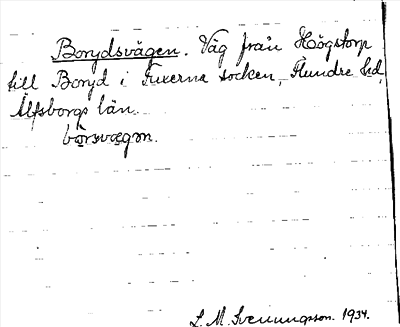 Borydsvägen. Väg från Högstorp
till Boryd i Fuxerna socken, Flundre hd,
Älfsborgs län.
S. M. Svenungsson. 1934.